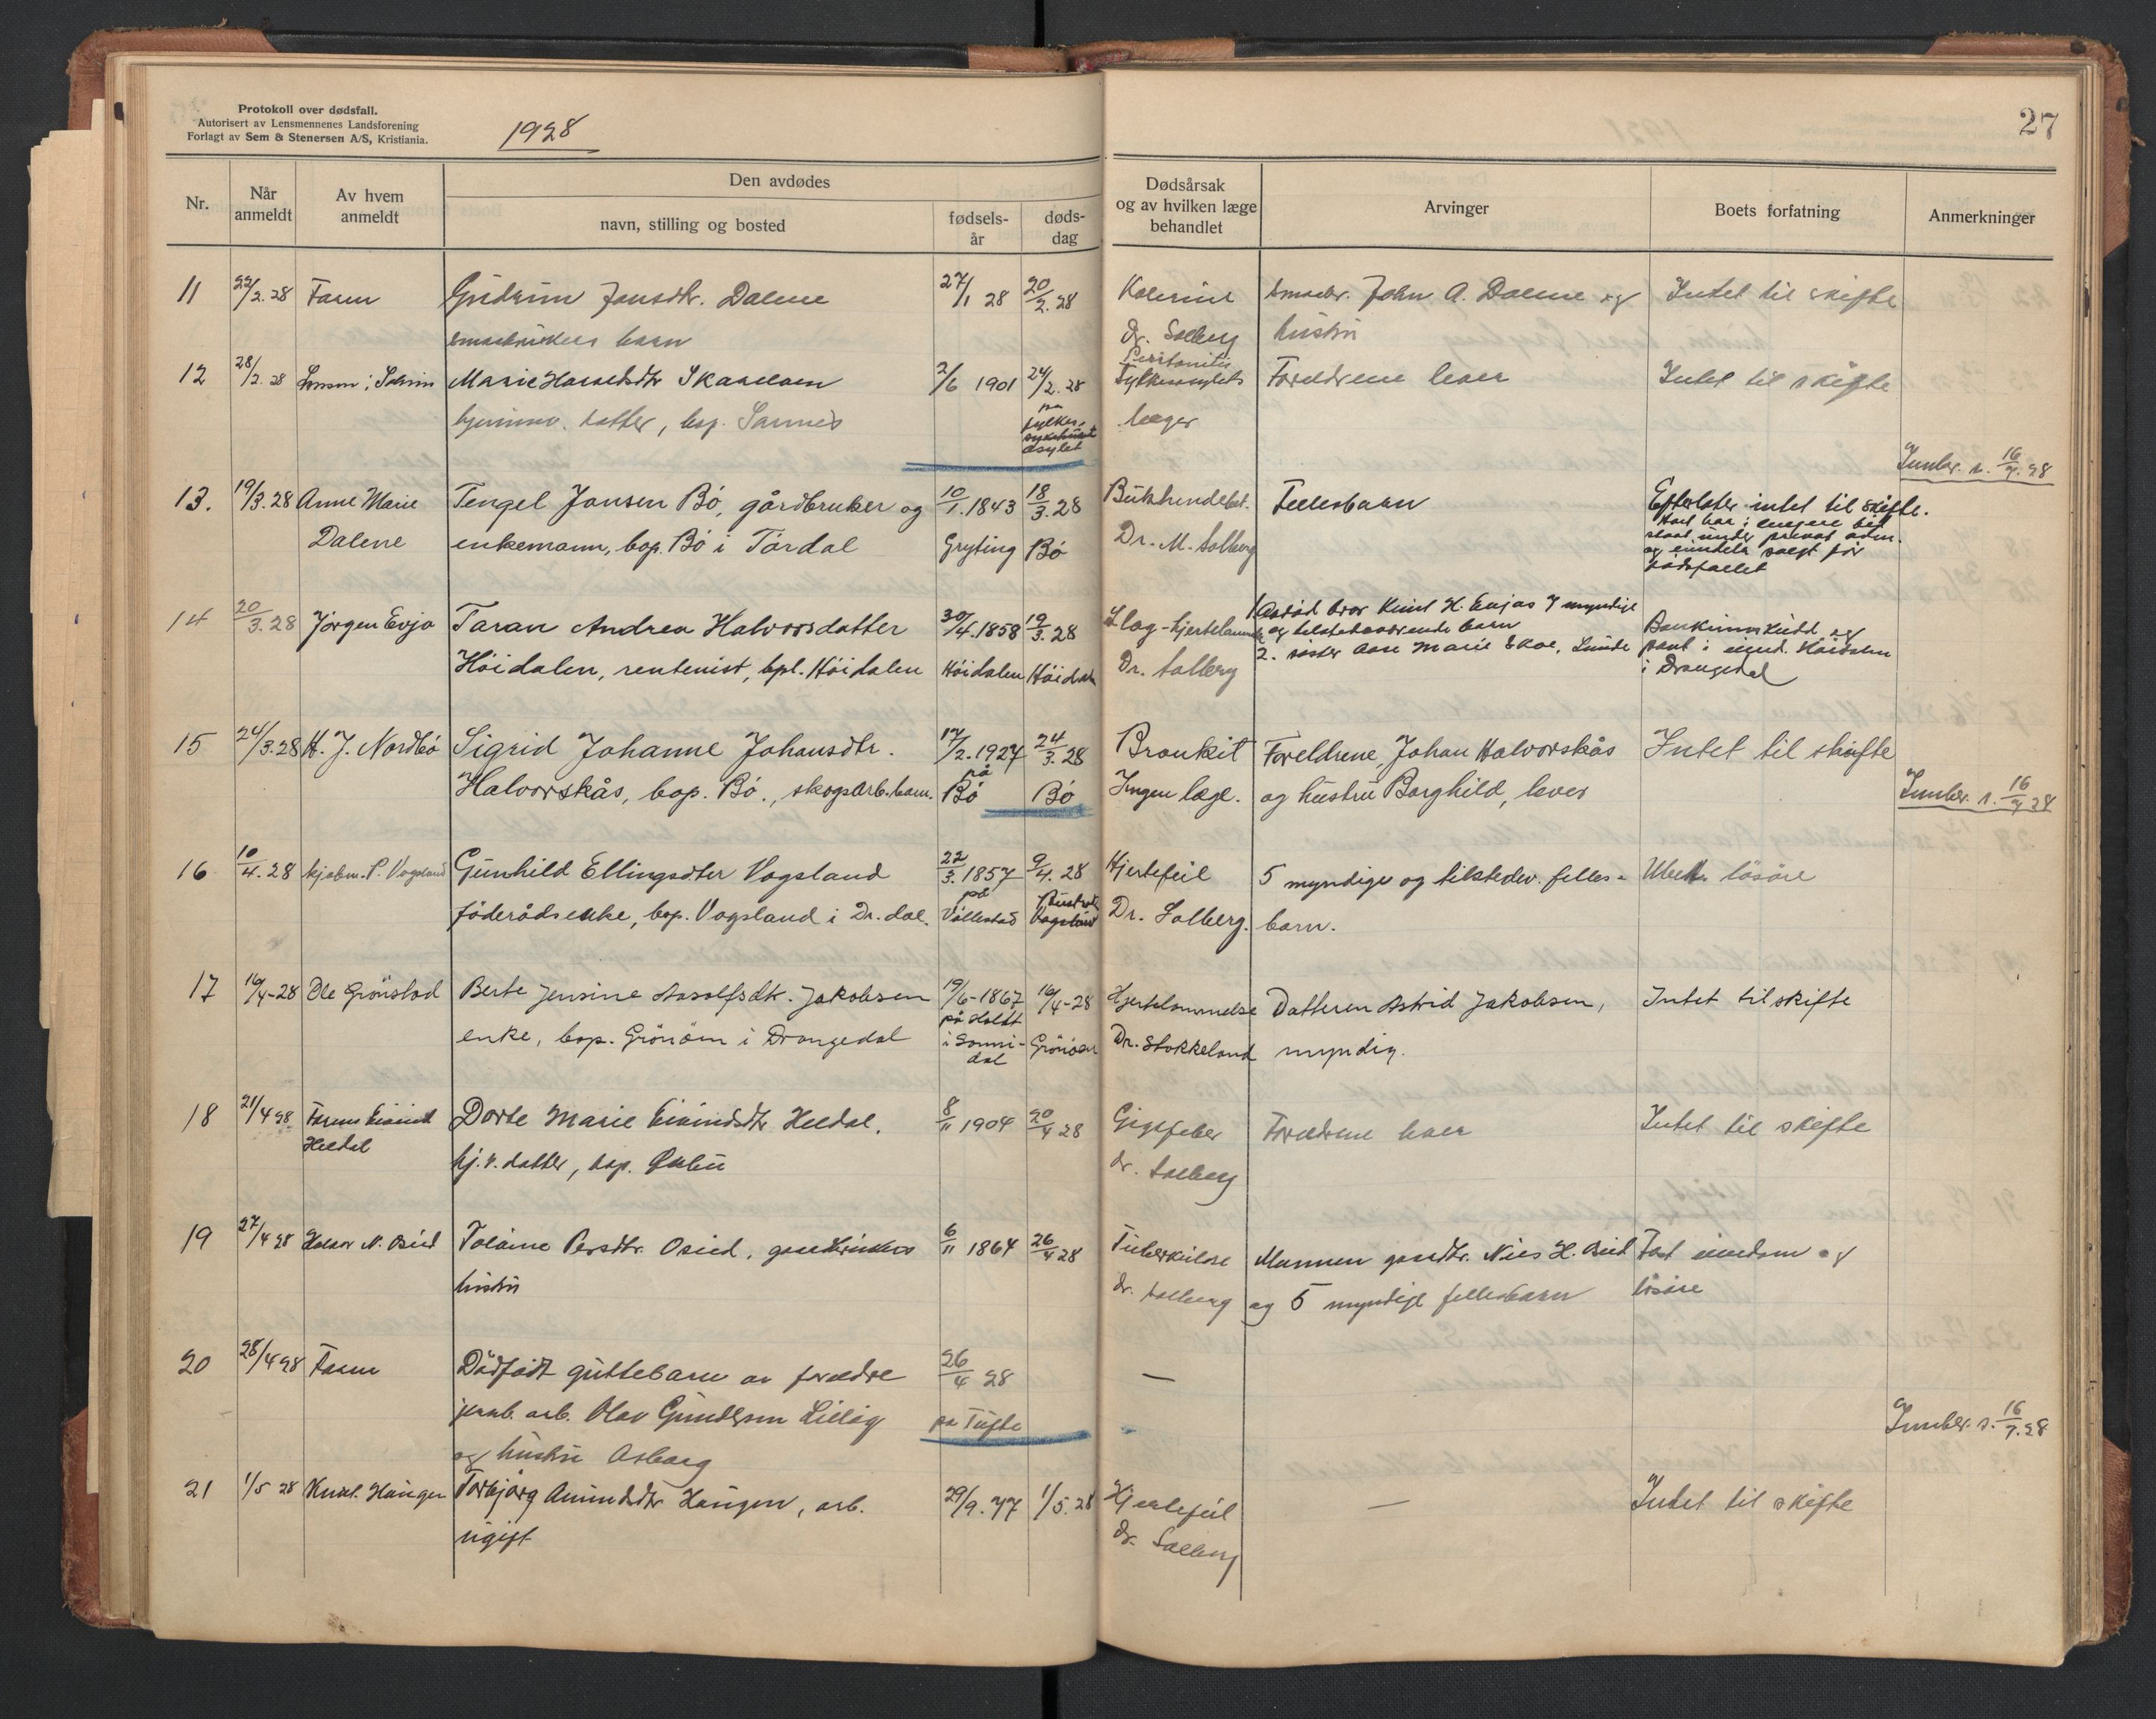 Protokoll over dødsfall.
Autorisert av Lensmennenes Landsforening
Forlagt av Sem & Stenersen A/S, Kristiania.
1928
27
Nr.
Når anmeldt
Av hvem anmeldt
Den avdødes
navn, stilling og bosted
fødsels-år
døds-dag
Dødsårsak og av hvilken læge behandlet
Arvinger
Boets forfatning
Anmerkninger
11 22/2.28 Faren Gudrun Jonsdtr. Dalene 27/1 28 20/2.28 John A. Dalene og Intet til skifte
småbrukers barn Dr. Solberg hustru
12 28/2.28 Marie 2/6 1901 24/2.28 Peritonitis Foreldrene lever Intet til skifte
datter, bop. Sannes på fylkes- asylet læger
Innber. s. 16/7.28
13. 19/3.28 Anne Marie Tengel Jansen Bö, gårdbruker og 10/1.1843 18/3.28 Fellesbarn Efterlater intet til skifte.
Dalene enkemann, bop. Bö i Tördal Gryting Bö Dr. M. Solberg
og eiendela solgt för
dödsfallet
14 20/3.28 Jörgen Evjo Taran Andrea Halvorsdatter 30/4.1858 19/3.28 Slag-hjertelammelse 1 Avdöd bror Knut H. Evjas 7 myndige
og tilstedeværende barn
Höidalen, rentenist, bpl. Höidalen Höidalen Höidalen Dr. Solberg 2. söster Aase Marie Lunde Bankinnskudd og
pant i eiend. Höidalen
i Drangedal
15 24/3.28 H. J. Nordbö Sigrid Johanne Johansdtr. 17/2.1927 24/3.28 Bronkit Foreldrene, Johan Halvorskås Intet til skifte
Halvorskås, bop. Bö., skogsarb. barn. på Bö Bö Ingen læge. og hustru Borghild, lever Innber. s. 16/7 28
16 10/4.28 kjöbm. P. Vogsland Gunhild Ellingsdter Vogsland 22/3.1857 9/4.28 Hjertefeil 5 myndige og tilstedev. felles- Ubet. lösöre
föderådsenke, bop. Vogsland i Dr.dal. på Völlestad Vogsland Dr. Solberg. barn.
17 16/4-28 Ole Grönstad Berte Jensine Aasolfsdt. Jakobsen 19/6-1867 16/4-28 Hjertelammelse Datteren Astrid Jakobsen, Intet til skifte
enke, bop. Grönåen i Drangedal på Holdt i Sanni-dal Grönåen Dr. Stokkeland myndig.
18 21/4 28 Faren Eivind Heldal Dorte Marie Eivindsdtr. Heldal, 8/11 1904 20/4 28 Gigtfeber Foreldrene lever Intet til skifte
hj.v. datter, bop. dr. Solberg
19 27/4 28 Halvor N. Persdtr. gaardbrukers 6/11 1864 26/4 28 Tuberkulose Mannen gaardbr. Nils H. Fast eiendom og
hustru dr. Solberg og 5 myndige fellesbarn lösöre
20 28/4 28 Faren Dödfödt guttebarn av foreldre 26/4 28 —
jernb. arb. Olav Gundersen på Tufte
og hustru Asborg
Innber. s. 16/7.28
21 1/5 28 Knut Haugen Torbjörg Haugen, arb. 29/9.77 1/5.28 Hjertefeil — Intet til skifte
ugift Dr. Solberg